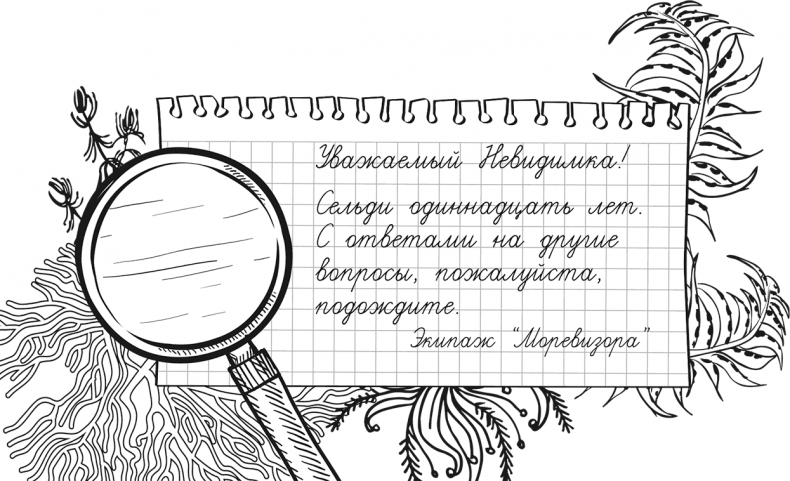 Уважаемый Невидимка!
Сельди одиннадцать лет.
С ответами на другие
вопросы, пожалуйста,
подождите.
Экипаж "Моревизора"